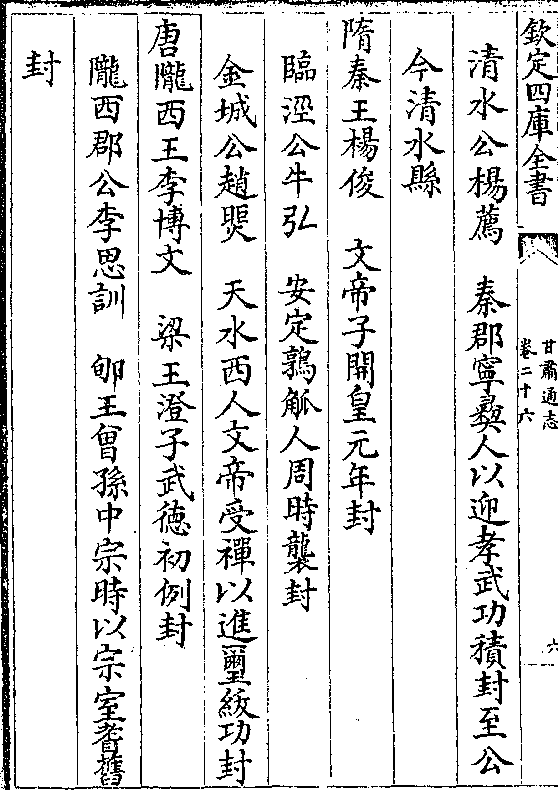 欽定四庫全書
甘肅通志
卷二十六
六
清水公楊薦　秦郡寧彞人以迎孝武功積封至公
今清水縣
隋秦王楊俊　文帝子開皇元年封
臨涇公牛弘　安定鶉觚人周時襲封
金城公趙煚　天水西人文帝受禪以進璽紱功封
唐隴西王李博文　梁王澄子武徳初例封
隴西郡公李思訓　郇王曾孫中宗時以宗室耆舊
封